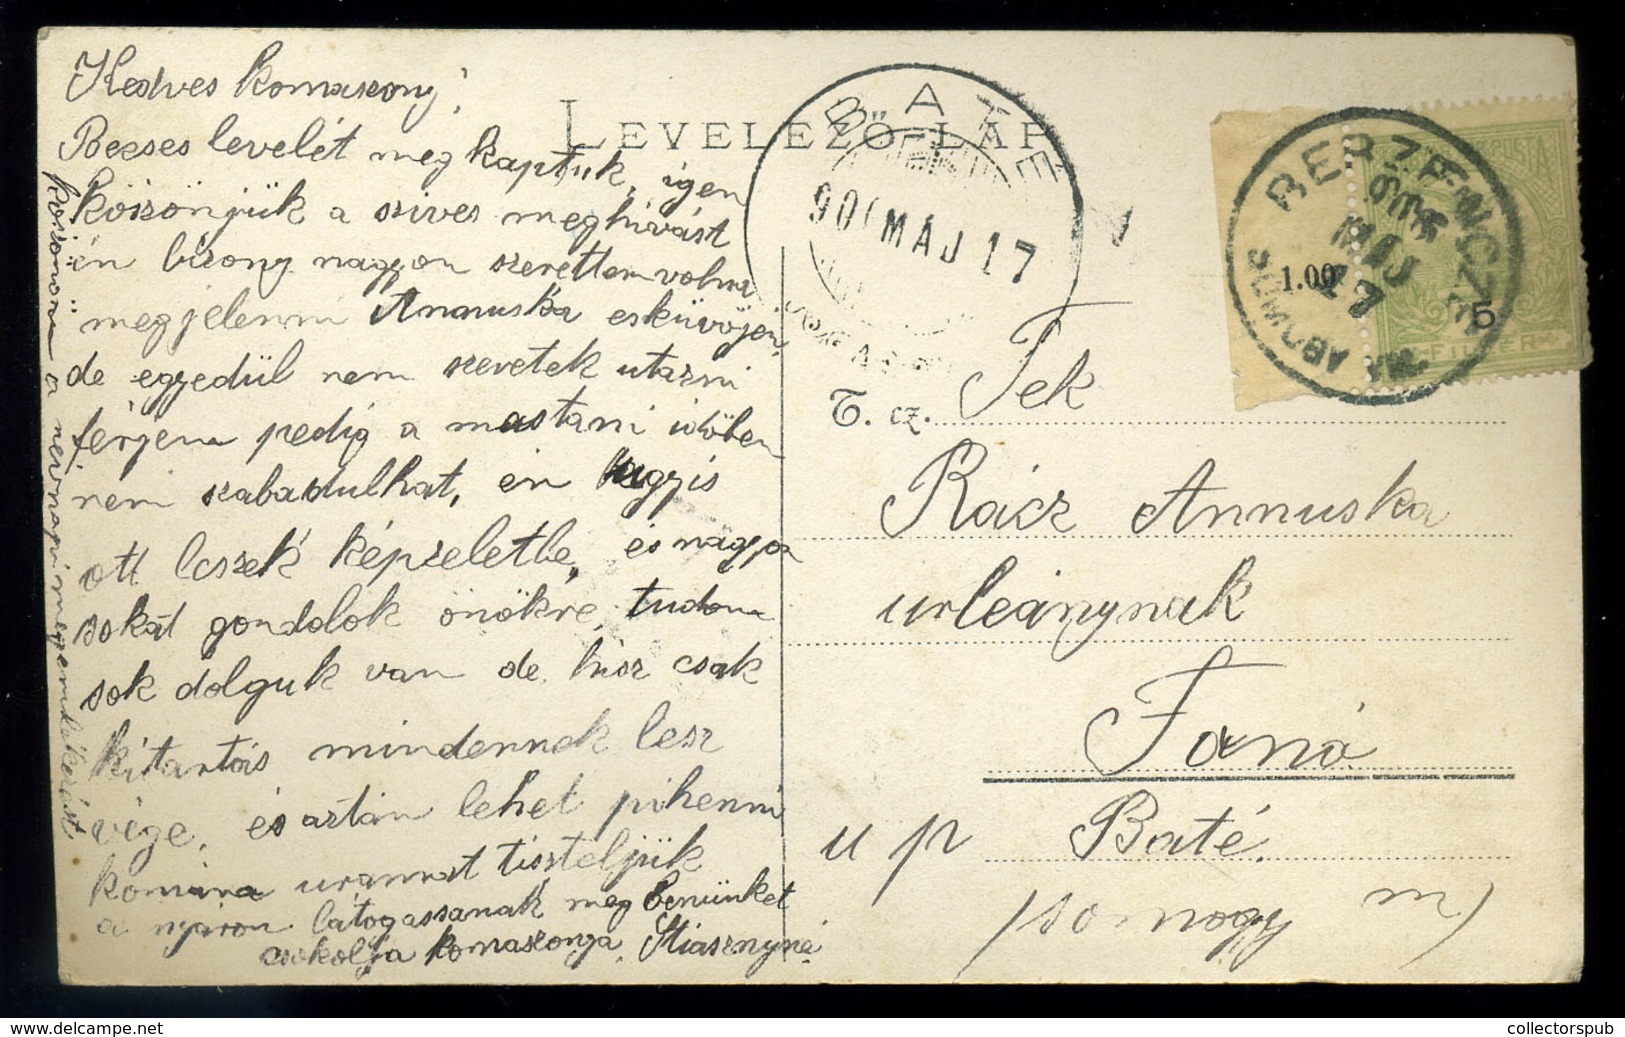 Kedves komaszony!
Becses levelét meg kaptuk, igen
köszönjük a szives meghivást
én bizony nagyon szerettem volna
megjelenni Annuska esküvőjén,
de egyedül nem szeretek utazni
férjem pedig a mostani időben
nem szabadulhat, én ugyis
ott leszek képzeletbe, és nagyon
sokat gondolok önökre, tudom
sok dolguk van de hisz csak
kitartás mindennek lesz
vége, és aztán lehet pihenni
komina urammat tiszteljük
a nyáron látogassanak meg benünket
csokolja komaszonya, Stiasznyné
köszönöm a nevnapi megemlékezést
LEVELEZŐ-LAP
BATÉ
90 MÁJ 17
BERZENCZE
SOMOGY VM.
906 MÁJ 17
1.00
POSTA
5
FILLÉR
T. cz. Tek
Rácz Annuska
urleánynak
Fonó
u p Baté.
(somogy m)
hu.picclick.com
collectorspub